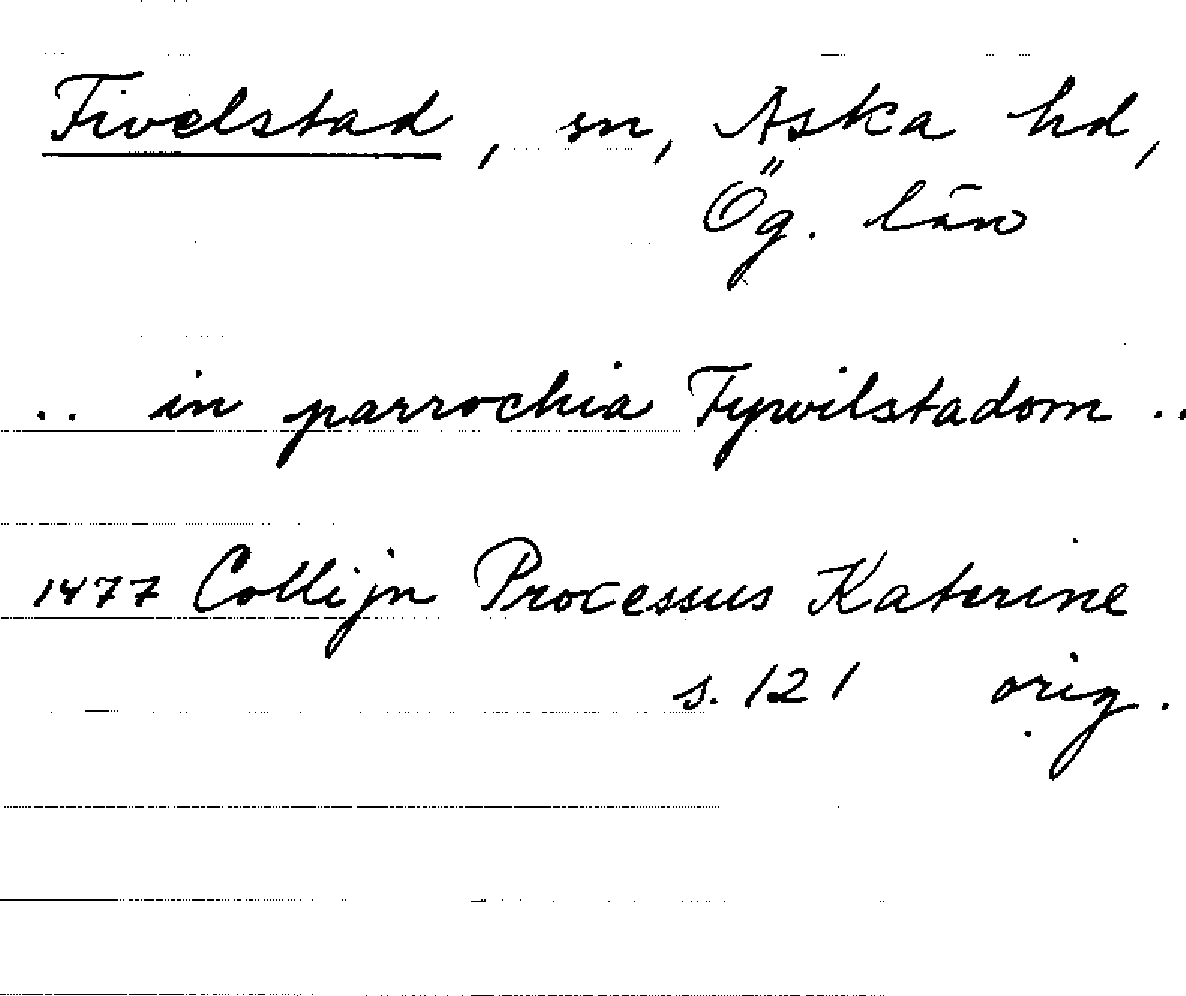 Fivelstad, sn, Aska hd,
Ög. län
.. in parrochia Fywilstadom ..
1477 Collijn Processus Katerine
s. 121 orig.